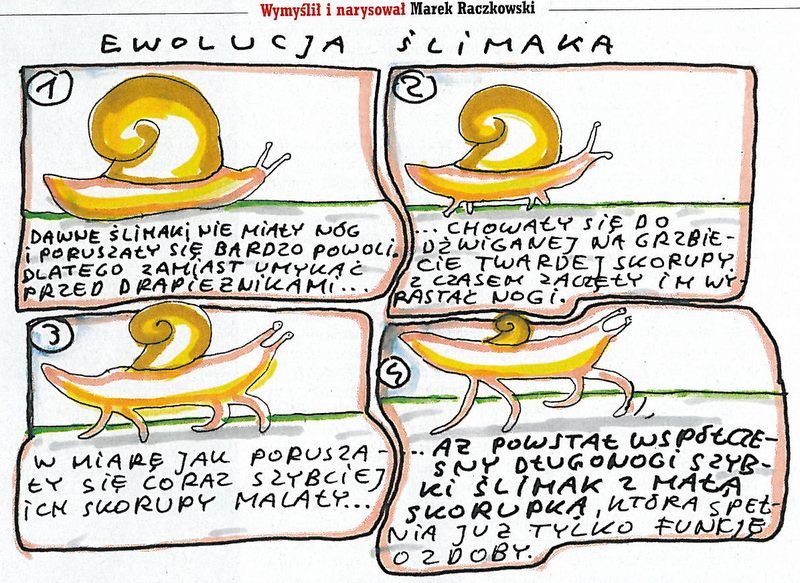 Wymyślił i narysował Marek Raczkowski
EWOLUCJA ŚLIMAKA
1
DAWNE ŚLIMAKI NIE MIAŁY NÓG
I PORUSZAŁY SIĘ BARDZO POWOLI.
DLATEGO ZAMIAST UMYKAĆ
PRZED DRAPIEŻNIKAMI...
2
... CHOWAŁY SIĘ DO
DŹWIGANEJ NA GRZBIE-
CIE TWARDEJ SKORUPY.
Z CZASEM ZACZĘŁY IM WY
RASTAĆ NOGI.
3
W MIARĘ JAK PORUSZA-
ŁY SIĘ CORAZ SZYBCIEJ
ICH SKORUPY MALAŁY...
4
...AŻ POWSTAŁ WSPÓŁCZE-
SNY DŁUGONOGI SZYB-
KI ŚLIMAK Z MAŁĄ
SKORUPKĄ, KTÓRA SPEŁ-
NIA JUŻ TYLKO FUNKCJĘ
OZDOBY.